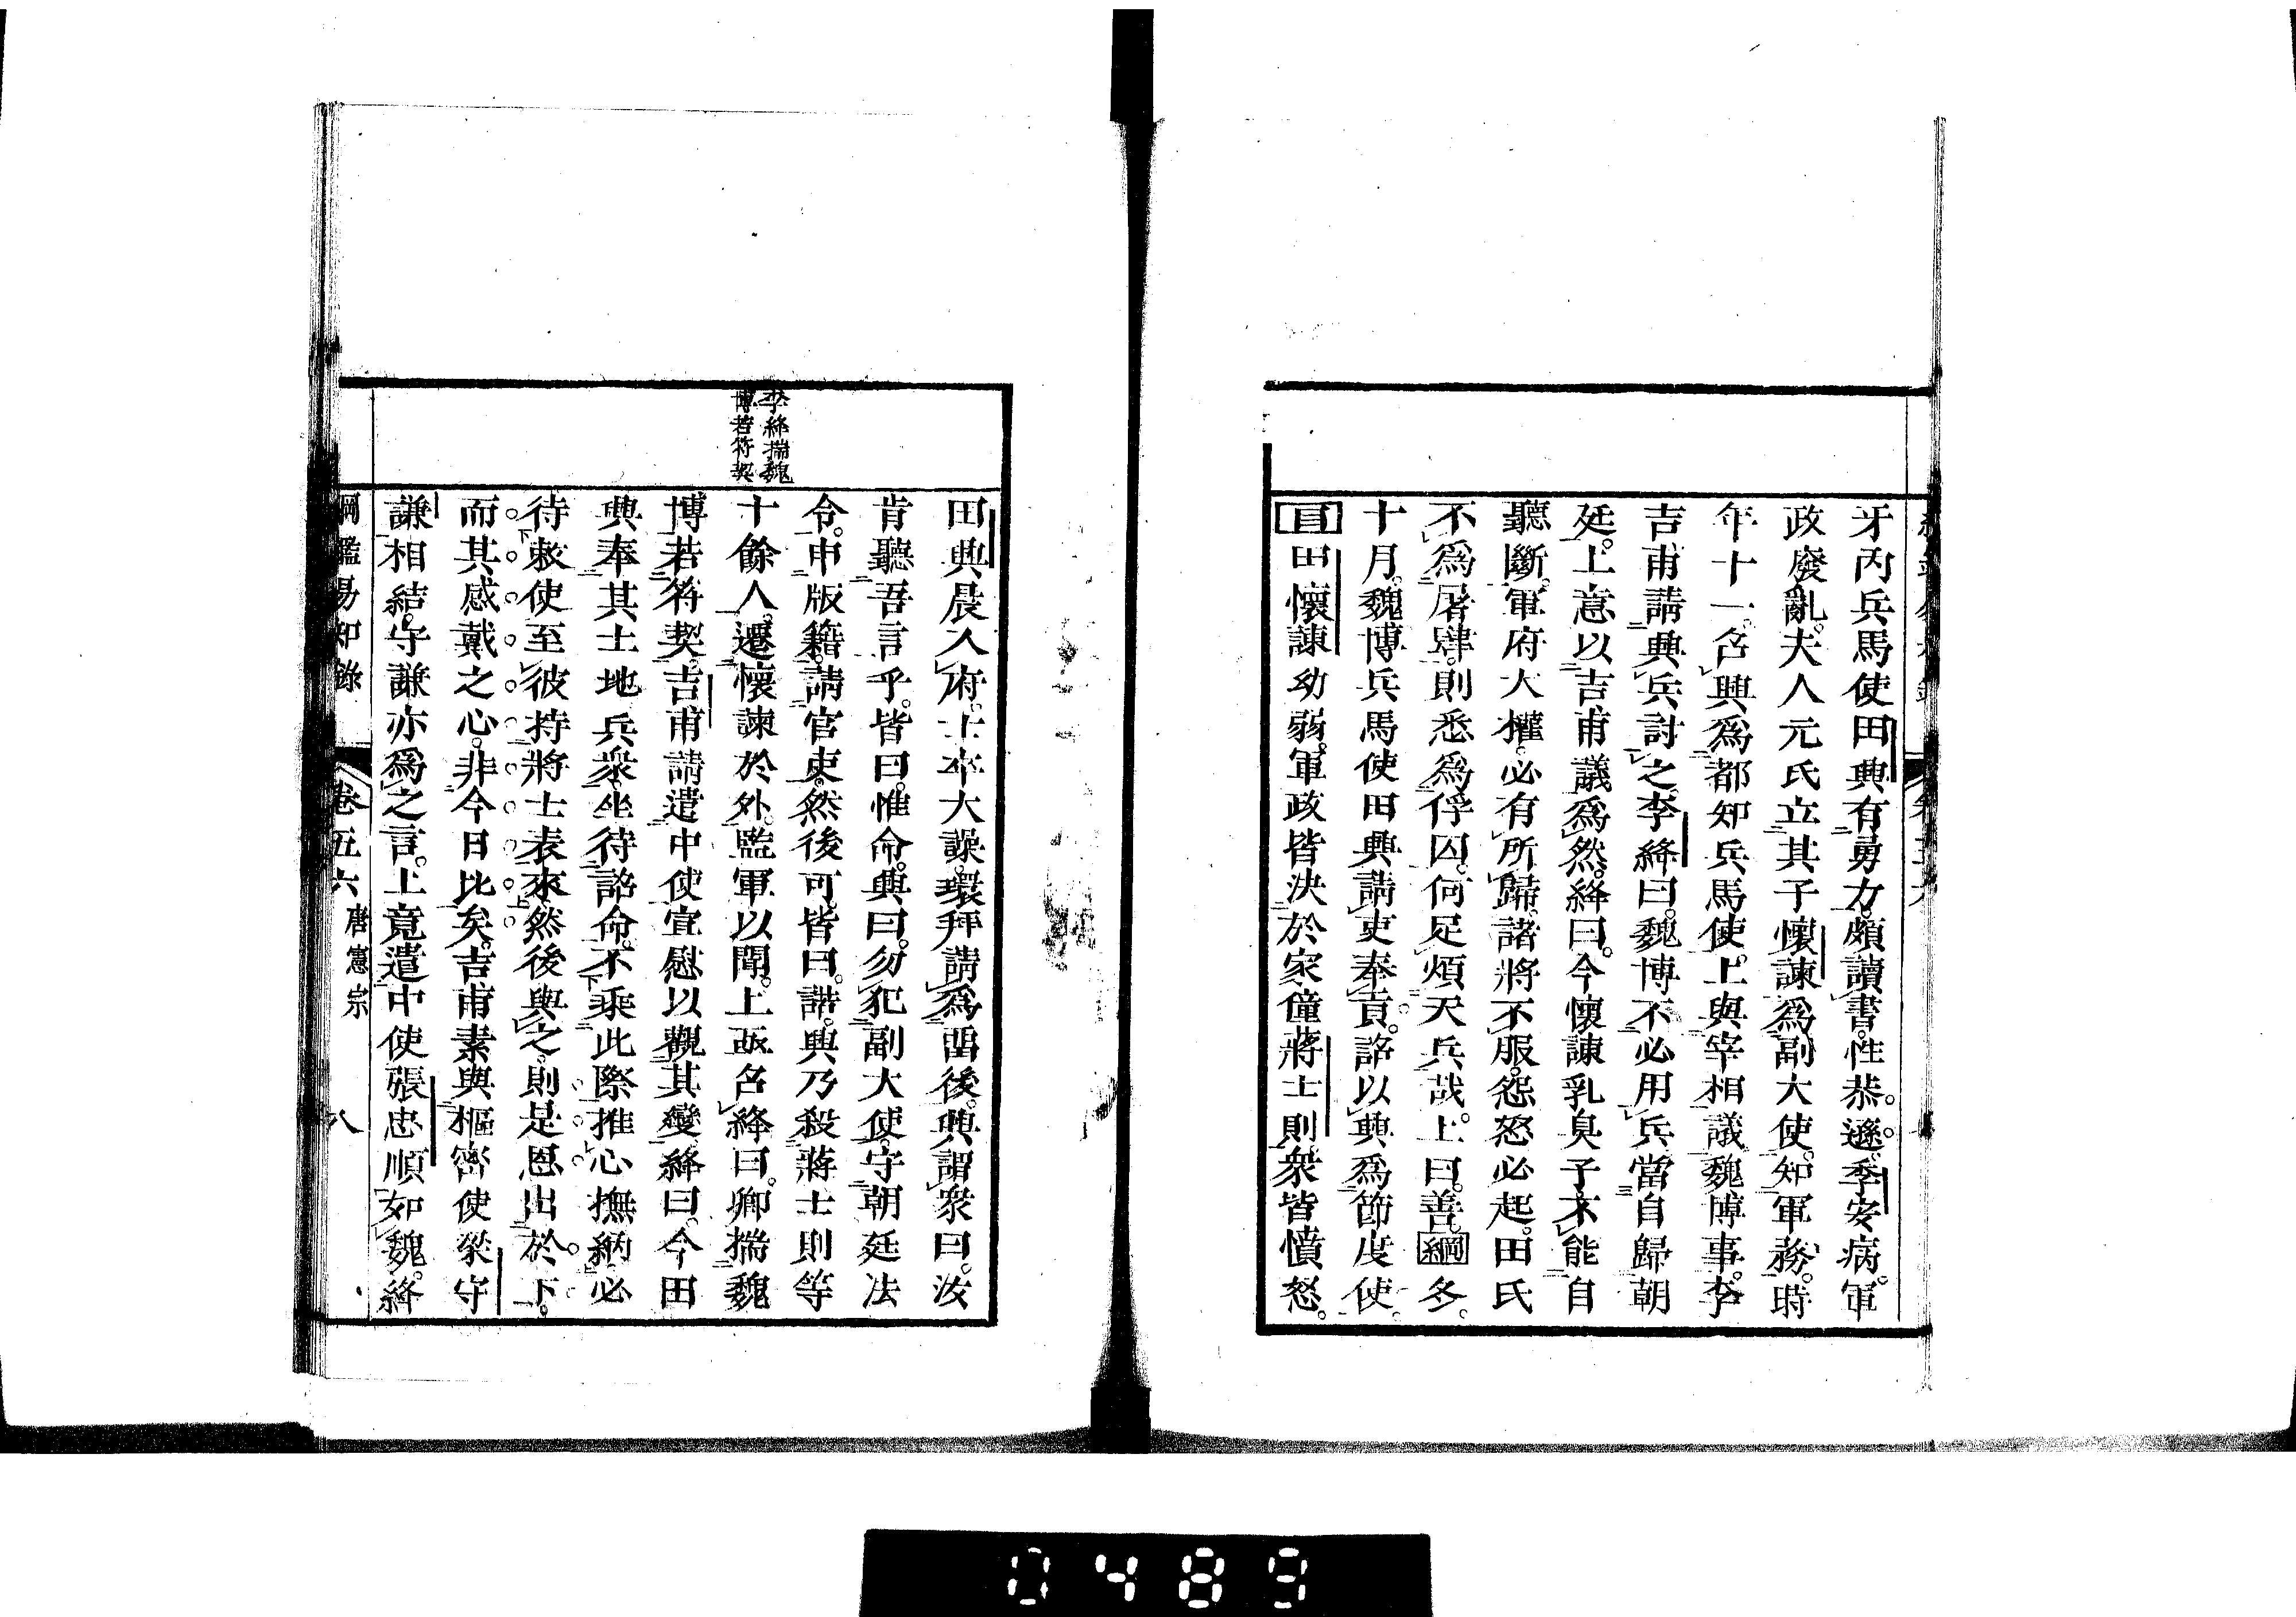 牙内兵馬使田興有勇力。頗讀書。性恭遜。季安病。軍
政廢亂。夫人元氏立其子懷諫爲副大使。知軍務。時
年十一。召興爲都知兵馬使。上與宰相議魏博事。李
吉甫請興兵討之。李絳曰。魏博不必用兵。當自歸朝
廷。上意以吉甫議爲然。絳曰。今懷諫乳臭子。不能自
聽斷。軍府大權。必有所歸。諸將不服。怨怒必起。田氏
不爲屠肆。則悉爲俘囚。何足煩天兵哉。上曰。善。綱冬。
十月。魏博兵馬使田興請吏奉貢。詔以興爲節度使。
目田懷諫幼弱。軍政皆決於家僮蔣士則。衆皆憤怒。
田興晨入府。士卒大譟。環拜請爲畱後。興謂衆曰。汝
肯聽吾言乎。皆曰。惟命。興曰。勿犯副大使。守朝廷法
令。申版籍。請官吏。然後可。皆曰。諾。興乃殺蔣士則等
十餘人。遷懷諫於外。監軍以聞。上亟召絳曰。卿揣魏
博若符契。吉甫請遣中使宣慰以觀其變。絳曰。今田
興奉其土地兵衆。坐待詔命。不乘此際推心撫納。必
待敕使至彼。持將士表來。然後與之。則是恩出於下。
而其感戴之心。非今日比矣。吉甫素與樞密使梁守
謙相結。守謙亦爲之言。上竟遣中使張忠順如魏。絳
李絳揣魏
博若符契
綱鑑易知錄 卷五六 唐憲宗 八
0489